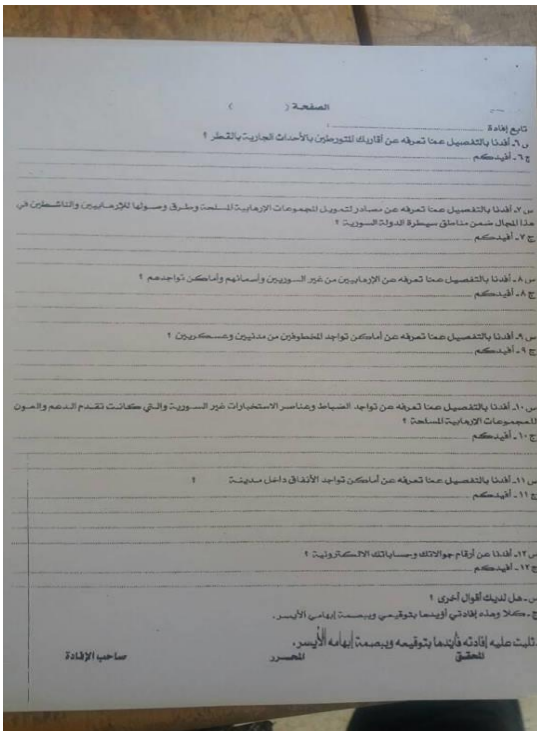 الصفحة ( )
تابع إفادة
س٦. أفدنا بالتفصيل عما تعرفه عن أقاربك المتورطين بالأحداث الجارية بالقطر ؟
ج٦. أفيدكم
س٧. أفدنا بالتفصيل عما تعرفه عن مصادر لتمويل المجموعات الإرهابية المسلحة وطرق وصولها للإرهابيين والناشطين في
هذا المجال ضمن مناطق سيطرة الدولة السورية ؟
ج٧. أفيدكم
س٨. أفدنا بالتفصيل عما تعرفه عن الإرهابيين من غير السوريين وأسمائهم وأماكن تواجدهم ؟
ج٨. أفيدكم
س٩. أفدنا بالتفصيل عما تعرفه عن أماكن تواجد المخطوفين من مدنيين وعسكريين ؟
ج٩. أفيدكم
س١٠. أفدنا بالتفصيل عما تعرفه عن تواجد الضباط وعناصر الاستخبارات غير السورية والتي كانت تقدم الدعم والعون
للمجموعات الإرهابية المسلحة ؟
ج١٠. أفيدكم
س١١. أفدنا بالتفصيل عما تعرفه عن أماكن تواجد الأنفاق داخل مدينة ؟
ج١١. أفيدكم
س١٢. أفدنا عن أرقام جوالاتك وحساباتك الالكترونية ؟
ج١٢. أفيدكم
س. هل لديك أقوال أخرى ؟
ج. كلا وهذه إفادتي أؤيدها بتوقيعي وببصمة إبهامي الأيسر.
تليت عليه إفادته فأيدها بتوقيعه وببصمة إبهامه الأيسر.
المحقق المحرر صاحب الإفادة